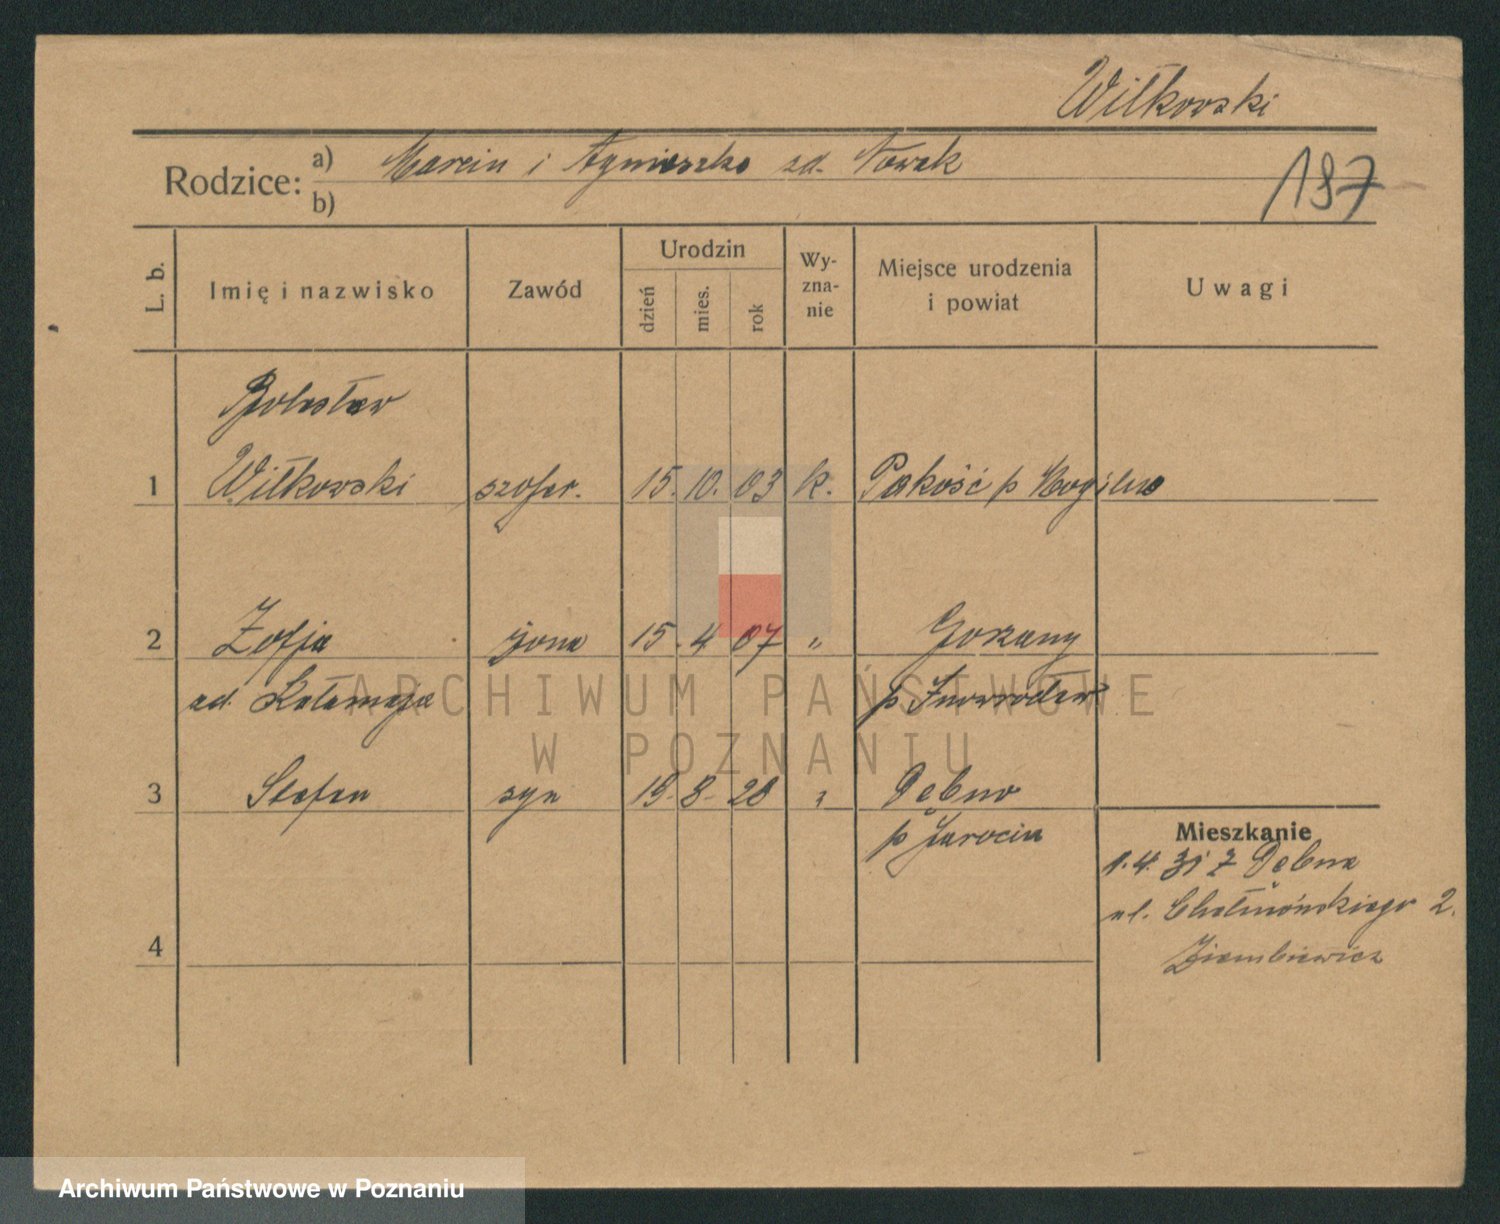 Wiłkowski
Rodzice: a) Marcin i Agnieszka zd. Nowak
b)
187
L. b.
Imię i nazwisko
Zawód
Urodzin
dzień
mies.
rok
Wy-
zna-
nie
Miejsce urodzenia
i powiat
Uwagi
Bolesław
1 Wiłkowski szofer. 15. 10. 03 k. Pakość p Mogilno
2 Zofja żona 15. 4 07 „
zd. p Inowrocław
3 Stefan syn 19. 8. 28 „ Dębno
p Jarocin
Mieszkanie
1.4. 31 z Dębna
ul. 2.
Ziembiewicz
4
ARCHIWUM PAŃSTWOWE
W POZNANIU
Archiwum Państwowe w Poznaniu